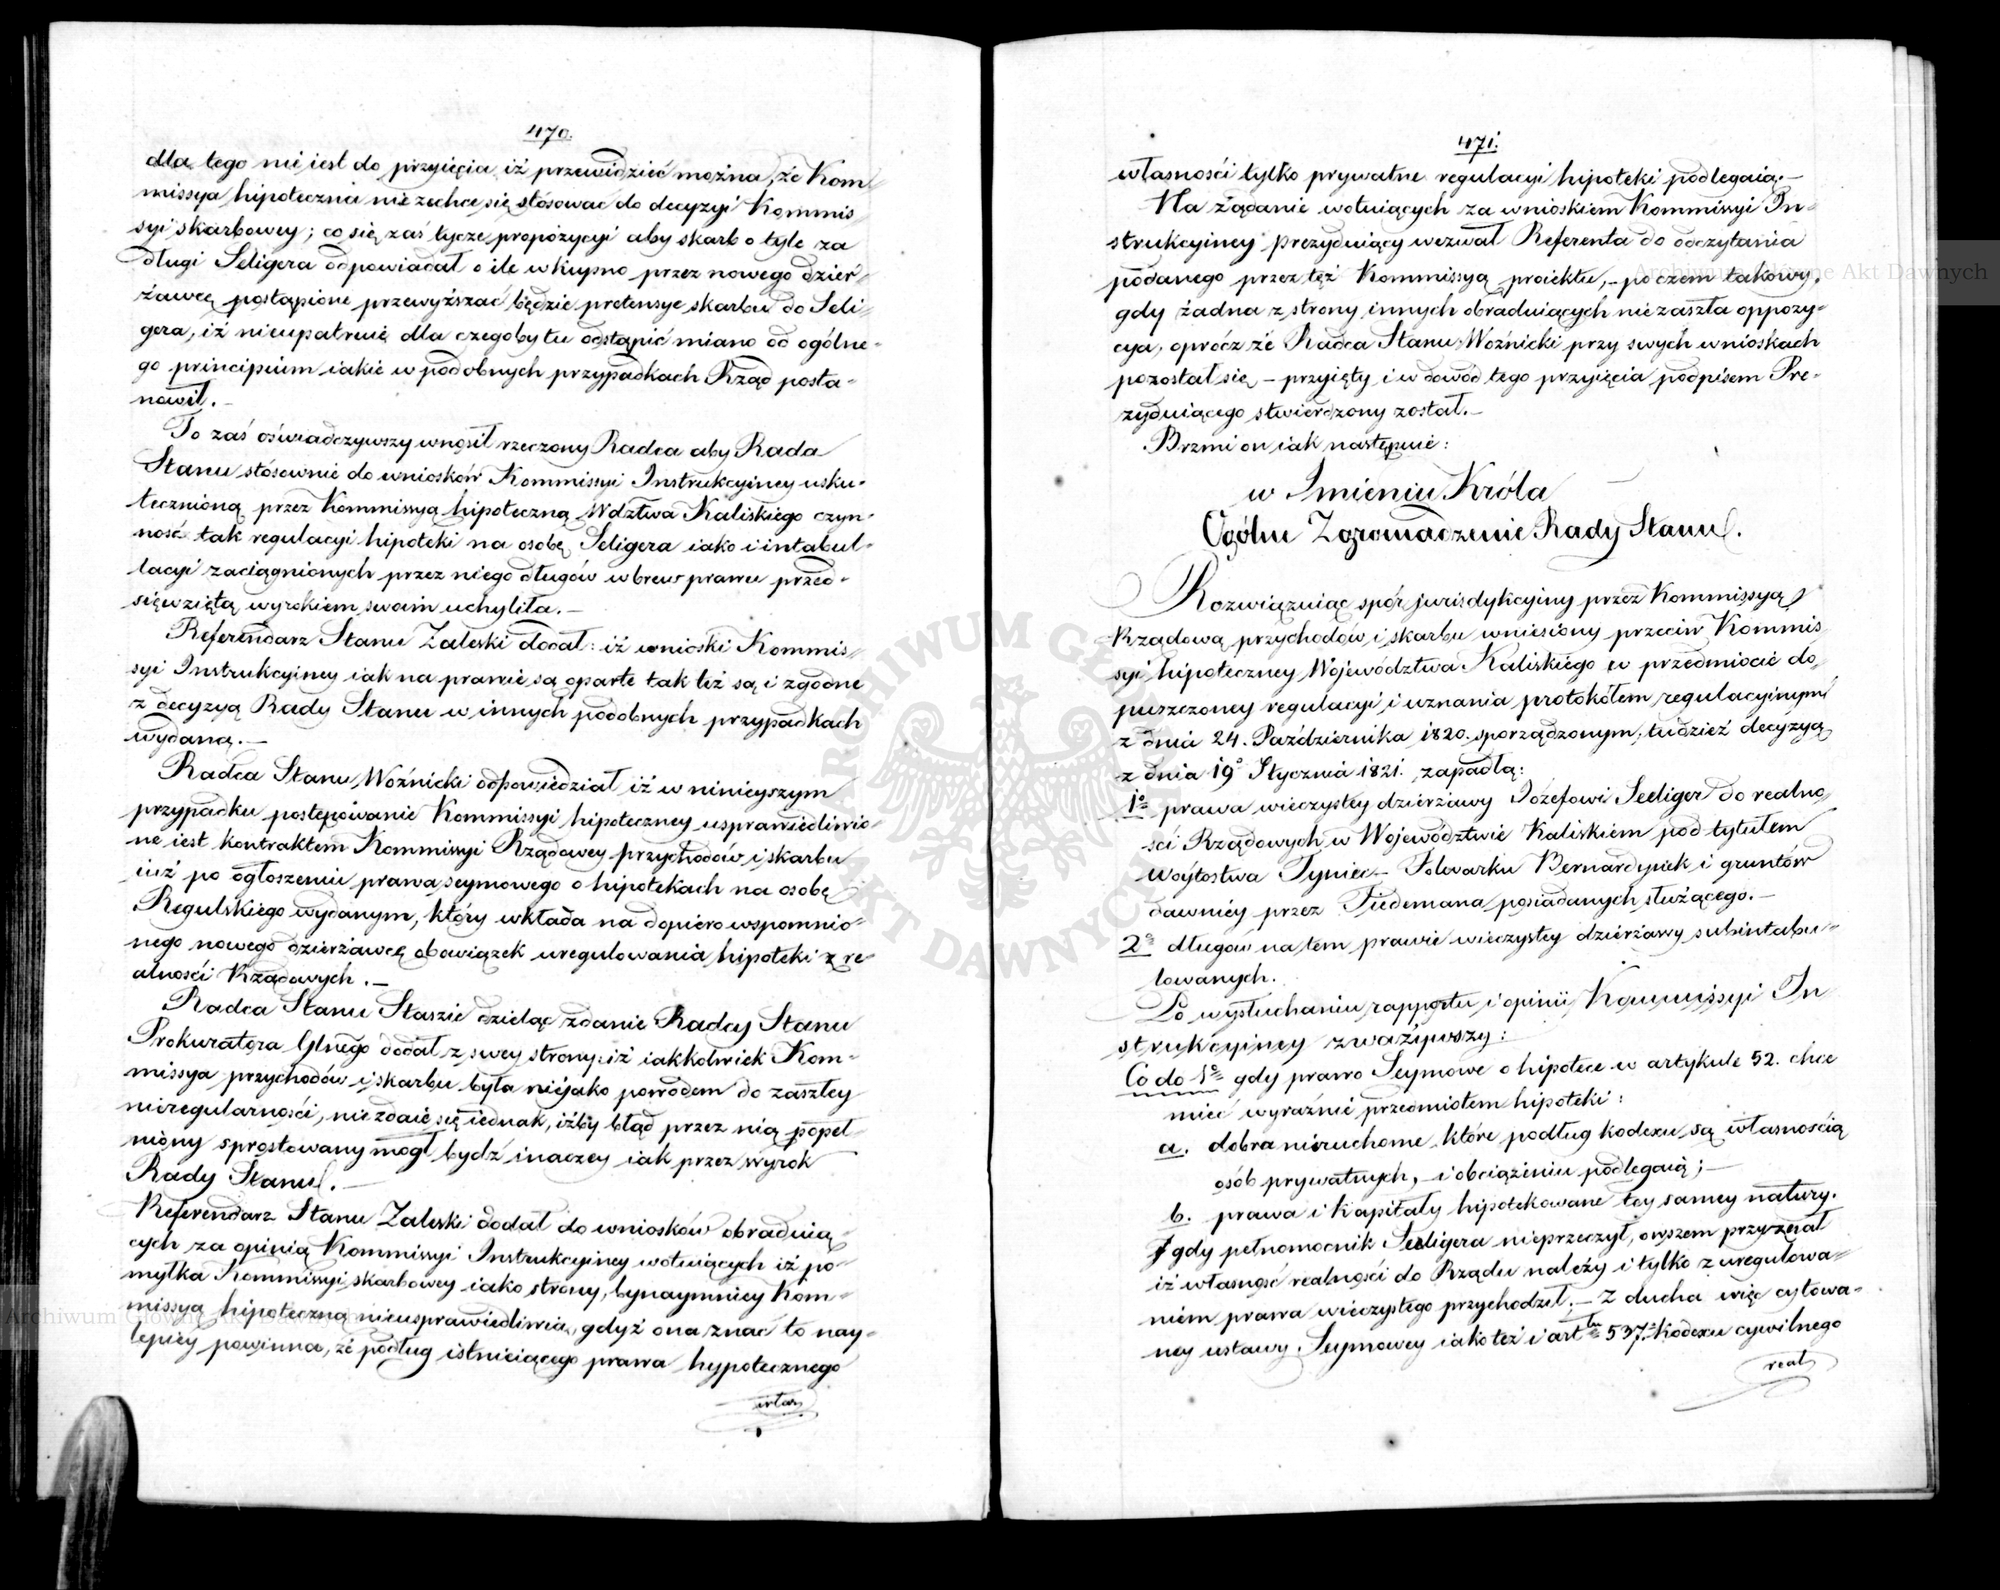 470.
dla tego nie iest do przyięcia iż przewidzieć można, że Kom
missya hipoteczna nie zechce się stosować do decyzyi Kommis
syi skarbowey; co się zaś tycze propozycyi aby skarb o tyle za
długi Seligera odpowiadał o ile wkupno przez nowego dzier-
żawcę postąpione przewyższać będzie pretensye skarbu do Seli-
gera, iż nieupatruie dla czegoby tu odstąpić miano od ogólne-
go principium iakie w podobnych przypadkach Rząd posta-
nowił.-
To zaś oświadczywszy wnosił rzeczony Radca aby Rada
Stanu stósownie do wniosków Kommissyi Instrukcyiney usku-
tecznioną przez Kommissyą hipoteczną Wdztwa Kaliskiego czyn-
ność tak regulacyi hipoteki na osobę Seligera iako i intabul-
lacyi zaciągnionych przez niego długów wbrew prawu przed-
sięwziętą wyrokiem swoim uchyliła.-
Referendarz Stanu Zaleski dodał: iż wnioski Kommis-
syi Instrukcyiney iak na prawie są oparte tak też są i zgodne
z decyzyą Rady Stanu w innych podobnych przypadkach
wydaną.-
Radca Stanu Woźnicki odpowiedział iż w ninieyszym
przypadku postępowanie Kommissyi hipoteczney usprawiedliwio-
ne iest kontraktem Kommissyi Rządowey przychodów i skarbu
iuż po ogłoszeniu prawa seymowego o hipotekach na osobę
Regulskiego wydanym, który wkłada na dopiero wspomnio-
nego nowego dzierżawcę obowiązek uregulowania hipoteki z re-
alności Rządowych.-
Radca Stanu Staszic dzieląc zdanie Radcy Stanu
Prokuratora Glnego dodał z swey strony: iż iakkolwiek Kom-
missya przychodów i skarbu była nieiako powodem do zaszłey
nieregularności, nie zdaie się iednak, iżby błąd przez nią popeł-
niony sprostowany mógł bydź inaczey iak przez wyrok
Rady Stanu.-
Referendarz Stanu Zaleski dodał do wniosków obraduią-
cych za opinią Kommissyi Instrukcyiney wotuiących iż po-
myłka Kommissyi skarbowey iako strony, bynaymniey Kom-
missyą hipoteczną nieusprawiedliwia, gdyż ona znać to nay-
lepiey powinna, że podług istnieiącego prawa hypotecznego
włas
471.
własności tylko prywatne regulacyi hipoteki podlegaią.-
Na żądanie wotuiących za wnioskiem Kommissyi In-
strukcyiney prezyduiący wezwał Referenta do odczytania
podanego przez też Kommissyą proiektu,- poczem takowy,
gdy żadna z strony innych obraduiących nie zaszła oppozy-
cya, oprócz że Radca Stanu Woźnicki przy swych wnioskach
pozostał się - przyięty i w dowód tego przyięcia podpisem Pre-
zyduiącego stwierdzony został.-
Brzmi on iak następuie:
w Imieniu Króla
Ogólne Zgromadzenie Rady Stanu.
Rozwiązuiąc spór jurisdykcyiny przez Kommissyą
Rządową przychodów i skarbu wniesiony przeciw Kommis
syi hipoteczney Województwa Kaliskiego w przedmiocie do-
puszczoney regulacyi i uznania protokółem regulacyinym
z dnia 24. Października 1820. sporządzonym, tudzież decyzyą
z dnia 19o Stycznia 1821. zapadłą:
1o prawa wieczystey dzierżawy Józefowi Seeliger do realno-
ści Rządowych w Województwie Kaliskiem pod tytułem
Wóytostwa Tyniec - Folwarku Bernardynek i gruntów
dawniey przez Tiedemana posiadanych służącego.-
2o długów na tem prawie wieczystey dzierżawy subintabu-
lowanych.
Po wysłuchaniu rapportu i opinii Kommissyi In
strukcyiney zważywszy:
Co do 1o gdy prawo Seymowe o hipotece w artykule 52. chce
mieć wyraźnie przedmiotem hipoteki:
a. dobra nieruchome które podług kodexu są własnością
osób prywatnych, - i obciążeniu podlegaią;-
b. prawa i kapitały hipotekowane tey samey natury.
gdy pełnomocnik Seeligera nieprzeczył, owszem przyznał
iż własność realności do Rządu należy i tylko z uregulowa-
niem prawa wieczystego przychodził;- Z ducha więc cytowa-
ney ustawy Seymowey iako też i arttu 537. Kodexu cywilnego
real